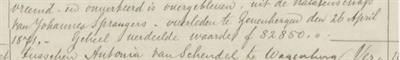 vreemd- en onverdeeld is overgebleven, uit de nalatenschap
van Johannes Sprangers - overleden te Zevenbergen den 26 April
1871,- Geheel verdeelde waarde f 82850.
Tusschen Antonia van Schendel te Wagenberg